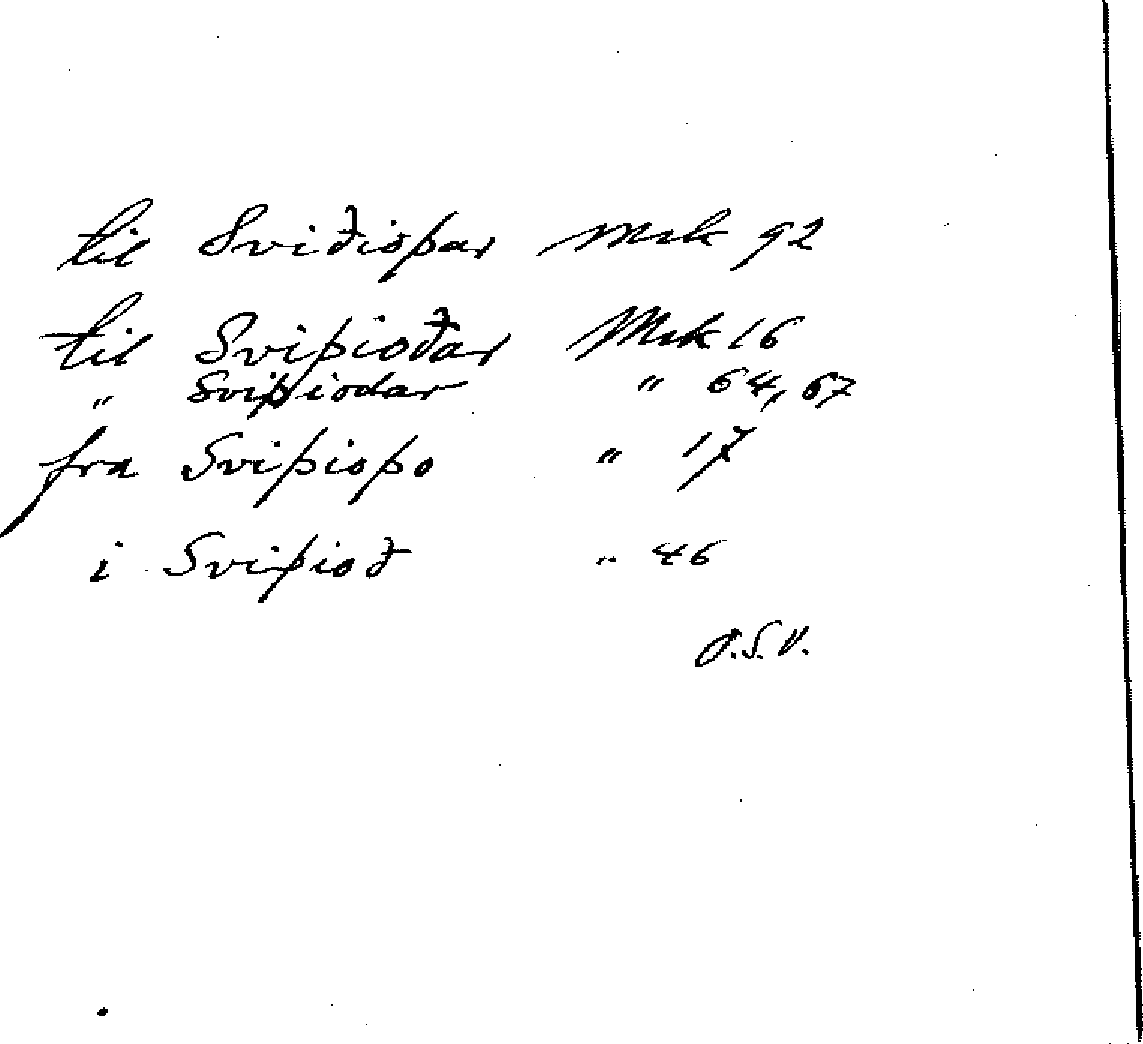 til Sviðisþar Mrk 92
til Sviþioðar Mrk 16
" Sviþiodar " 64, 67
fra Sviþioþo " 17
i Sviþioð " 46
O.S.V.